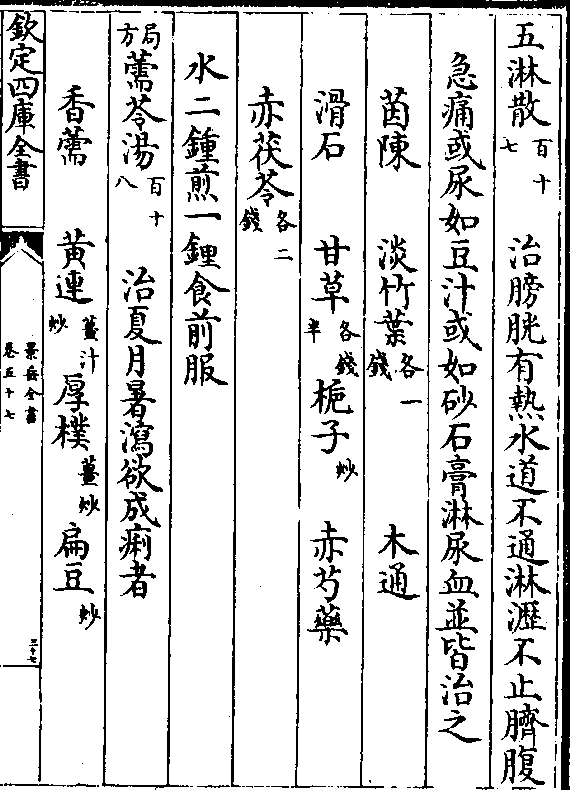 五淋散百十七　治膀胱有熱水道不通淋瀝不止臍腹
急痛或尿如豆汁或如砂石膏淋尿血並皆治之
茵陳　淡竹葉各一錢　木通
滑石　甘草各錢半　梔子炒　赤芍藥
赤茯苓各二錢
水二鍾煎一鍾食前服
局方薷苓湯百十八　治夏月暑瀉欲成痢者
香薷　黃連薑汁炒　厚樸薑炒　扁豆炒
欽定四庫全書
景岳全書
卷五十七
三十七